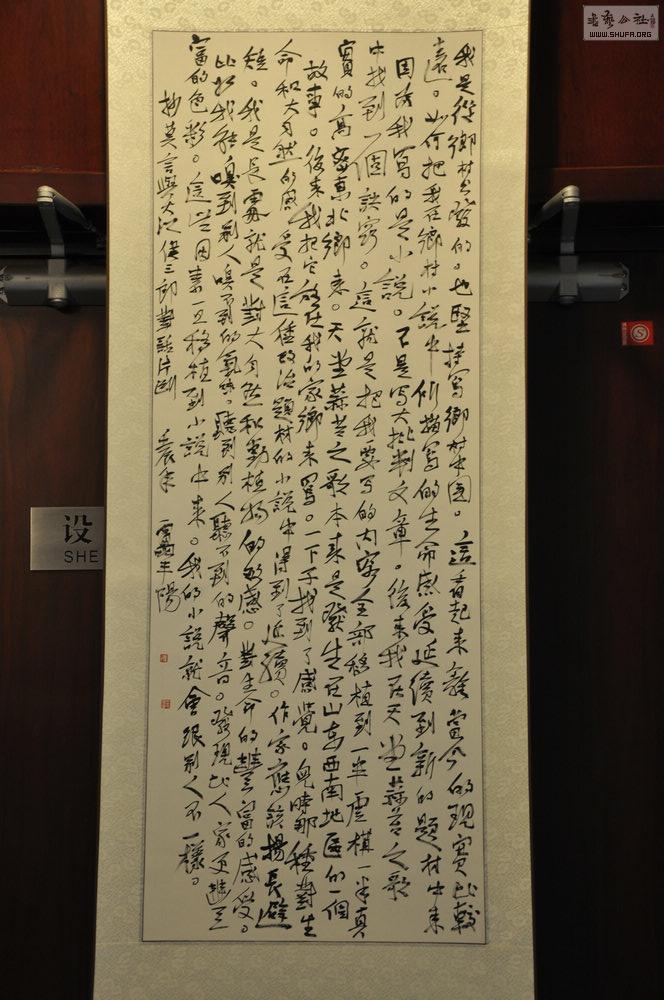 我是從鄉村出發的。也堅持寫鄉村中國。這看起來離當今的現實比較
遠。如何把我在鄉村小說中所描寫的生命感受延續到新的題材中來
因為我寫的是小說。不是寫大批判文章。後來我在天堂蒜薹之歌
中找到一個訣竅。這就是把我要寫的內容全部移植到一半虛構一半真
實的高密東北鄉來。天堂蒜薹之歌本來是發生在山東西南地區的一個
故事。後來我把它放在我的家鄉來寫。一下子找到了感覺。兒時那種對生
命和大自然的感受在這種政治題材的小說中得到了延續。作家應該揚長避
短。我是長處就是對大自然和動植物的敏感。對生命的豐富的感受。
比如我能嗅到別人嗅不到的氣味。聽到別人聽不到的聲音。發現比人家更豐
富的色彩。這些因素一旦移植到小說中來。我的小說就會跟別人不一樣。
抄莫言與大江健三郎對話片斷
雷平陽
书艺公社
WWW.SHUFA.ORG
设
SHE